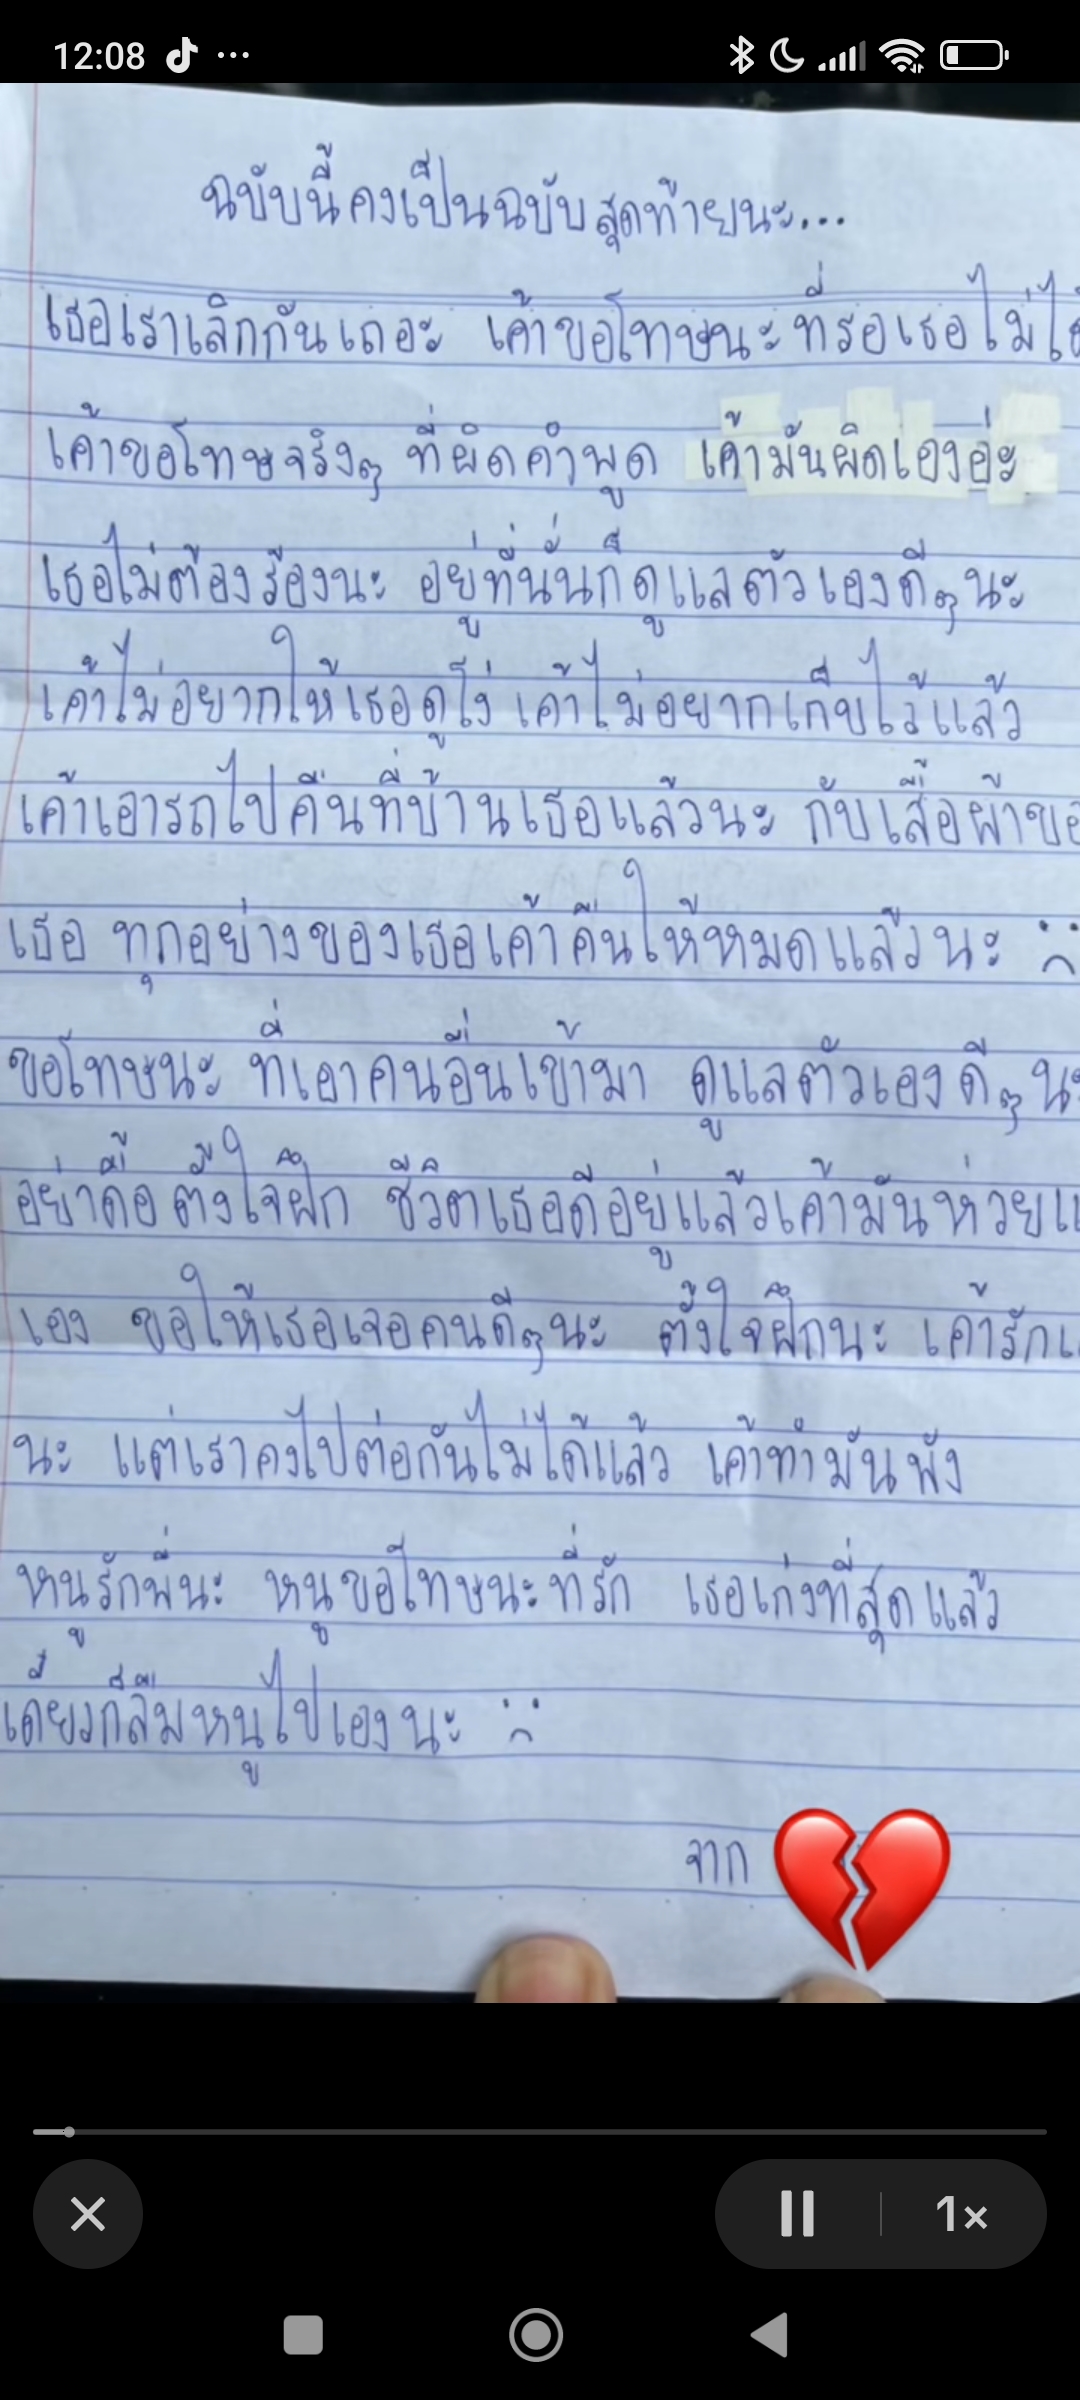 12:08
ฉบับนี้คงเป็นฉบับสุดท้ายนะ...
เธอเราเลิกกันเถอะ เค้าขอโทษนะที่รอเธอไม่
เค้าขอโทษจริงๆ ที่ผิดคำพูด เค้ามันผิดเองอ่ะ
เธอไม่ต้องร้องนะ อยู่ที่นั่นก็ดูแลตัวเองดีๆนะ
เค้าไม่อยากให้เธอดูโง่ เค้าไม่อยากเก็บไว้แล้ว
เค้าเอารถไปคืนที่บ้านเธอแล้วนะ กับเสื้อผ้าขอ
เธอ ทุกอย่างของเธอเค้าคืนให้หมดแล้วนะ
ขอโทษนะ ที่เอาคนอื่นเข้ามา ดูแลตัวเองดีๆ นะ
อย่าดื้อ ตั้งใจฝึก ชีวิตเธอดีอยู่แล้วเค้ามันห่วย
เอง ขอให้เธอเจอคนดีๆนะ ตั้งใจฝึกนะ เค้ารัก
นะ แต่เราคงไปต่อกันไม่ได้แล้ว เค้าทำมันพัง
หนูรักพี่นะ หนูขอโทษนะที่รัก เธอเก่งที่สุดแล้ว
เดี๋ยวก็ลืมหนูไปเองนะ
จาก
1×